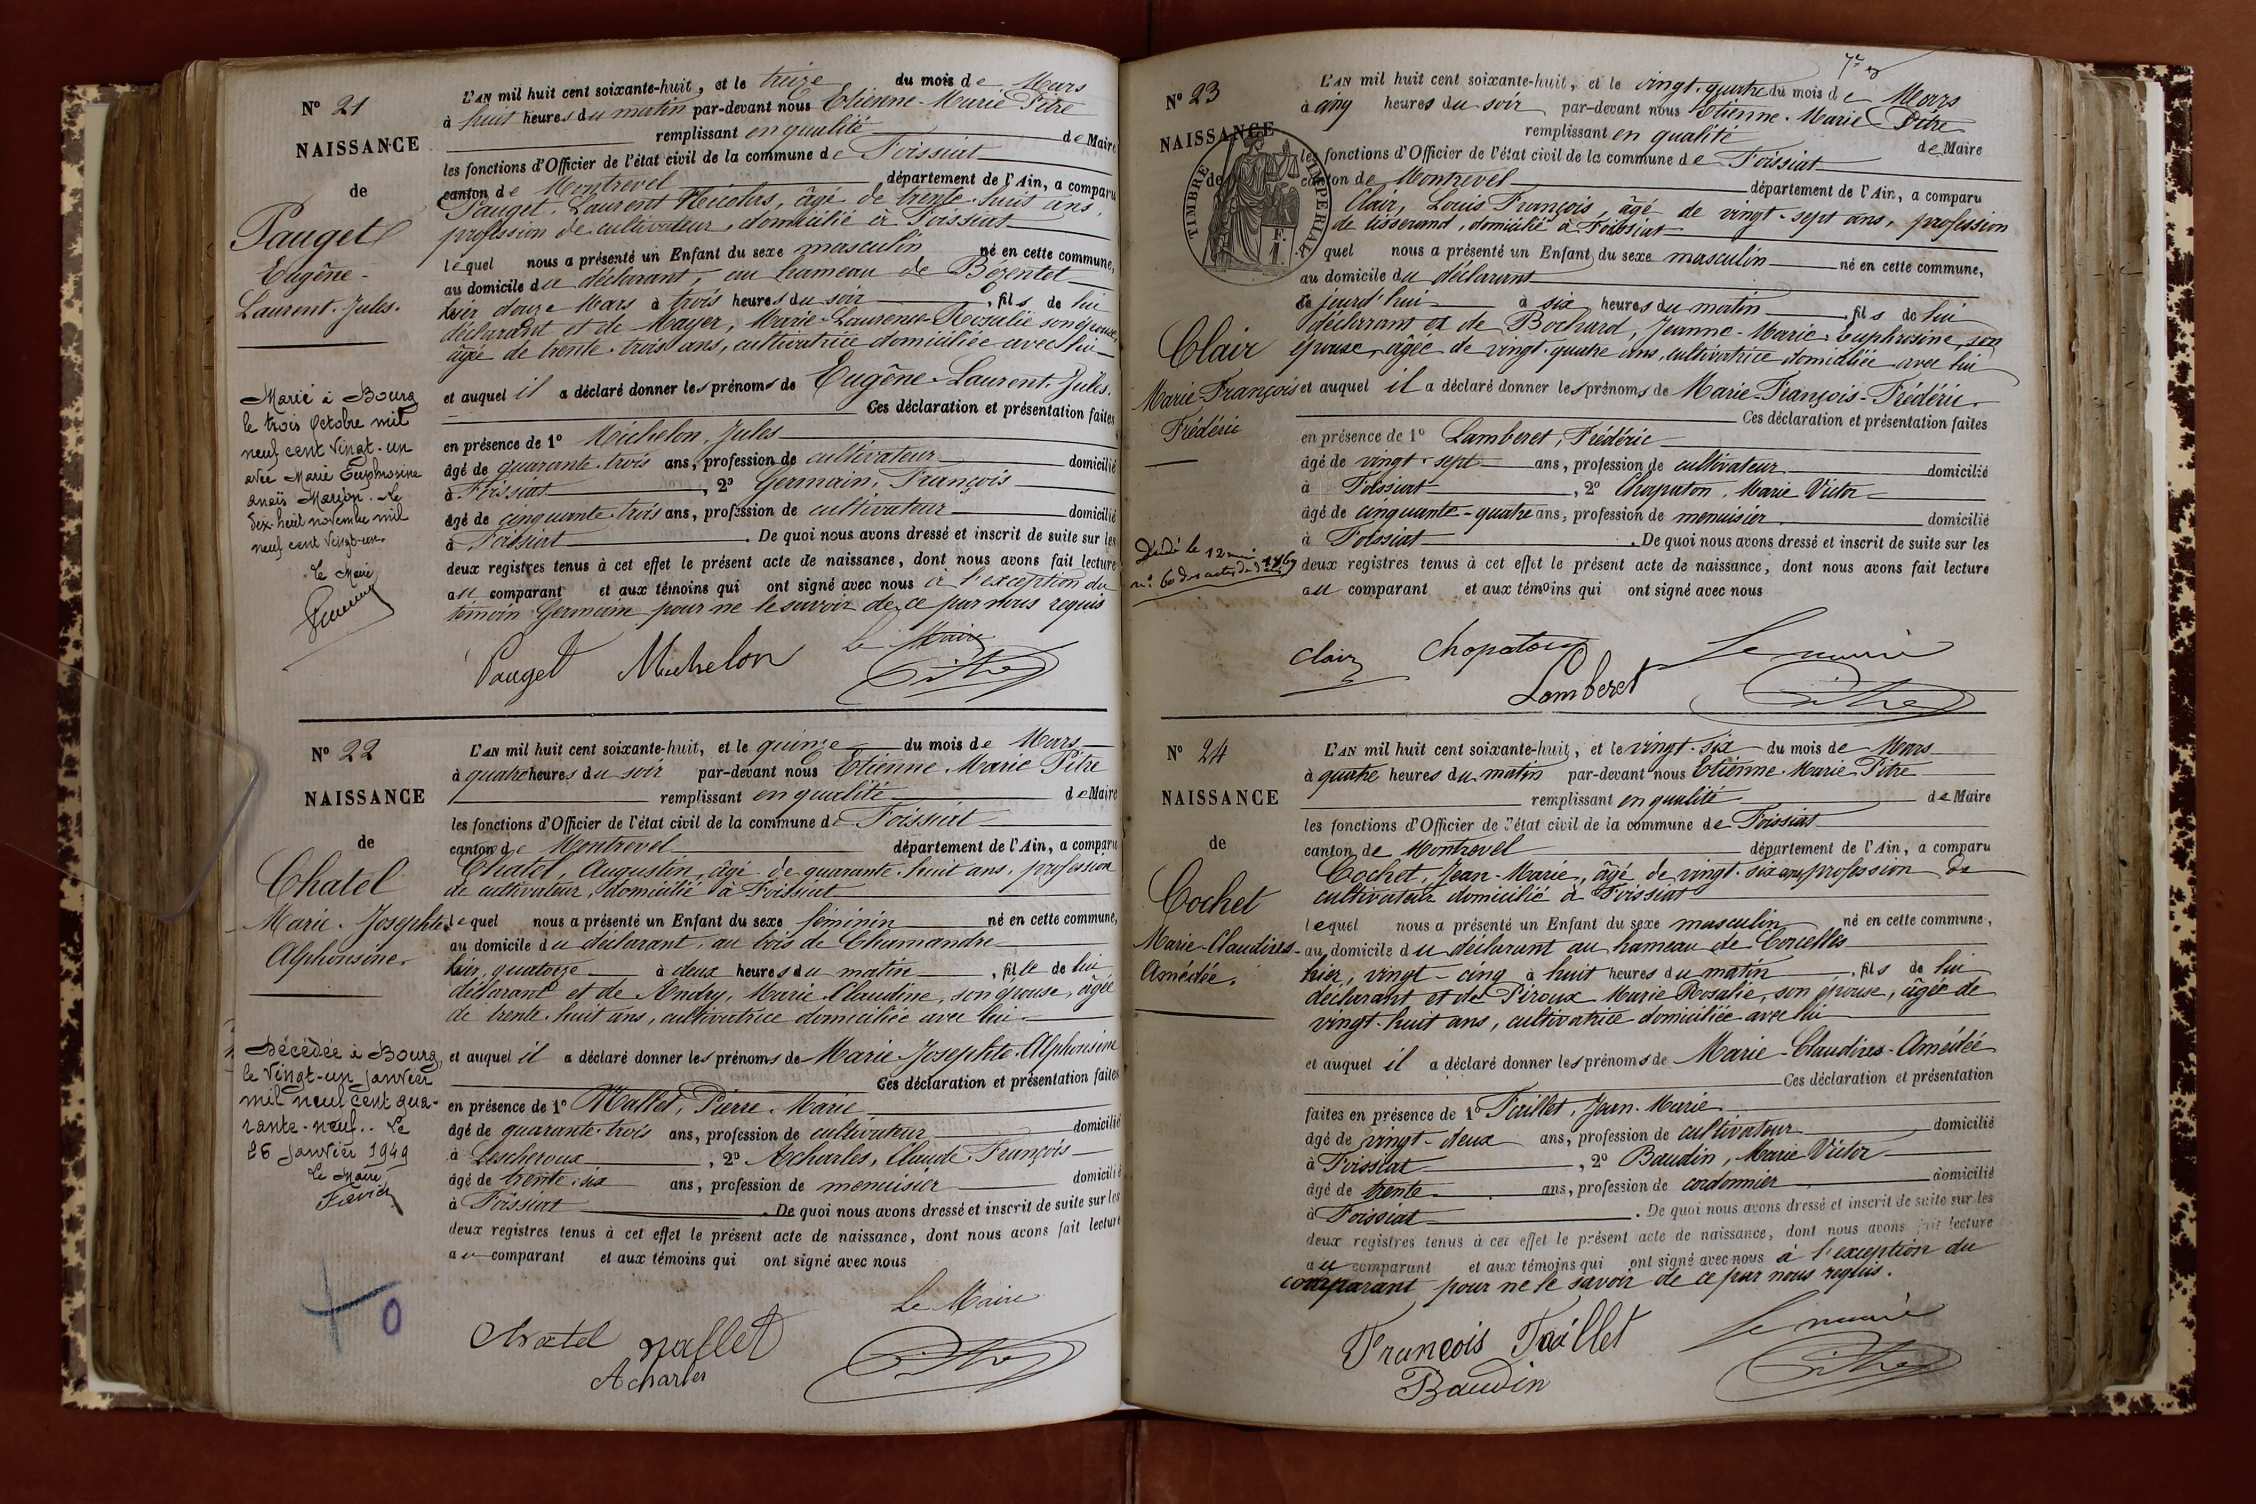 N° 21
NAISSANCE
de
Pauget
Eugène-
Laurent-Jules.
Marié à Bourg
le trois Octobre mil
neuf cent vingt-un
avec Marie Euphrosine
anaïs Marion. Le
dix huit novembre mil
neuf cent vingt-un.
Le Maire
L'AN mil huit cent soixante-huit, et le treize du mois de Mars
à huit heures du matin par-devant nous Etienne-Marie Pitre
remplissant en qualité de Maire
les fonctions d'Officier de l'état civil de la commune de Foissiat
canton de Montrevel département de l'Ain, a comparu
Pauget, Laurent Nicolas, âgé de trente-huit ans,
profession de cultivateur, domicilié à Foissiat
lequel nous a présenté un Enfant du sexe masculin né en cette commune,
au domicile du déclarant, au hameau de Bezentet
hier douze Mars à trois heures du soir, fils de lui
déclarant et de Mayer, Marie-Laurence-Rosalie son épouse,
âgée de trente-trois ans, cultivatrice domiciliée avec lui
et auquel il a déclaré donner les prénoms de Eugène-Laurent-Jules.
Ces déclaration et présentation faites
en présence de 1° Michelon, Jules
âgé de quarante-trois ans, profession de cultivateur domicilié
à Foissiat, 2° Germain, François
âgé de cinquante-trois ans, profession de cultivateur domicilié
à Foissiat. De quoi nous avons dressé et inscrit de suite sur les
deux registres tenus à cet effet le présent acte de naissance, dont nous avons fait lecture
au comparant et aux témoins qui ont signé avec nous à l'exception du
témoin Germain pour ne le savoir de ce par nous requis
Pauget Michelon Le Maire
Pitre
N° 22
NAISSANCE
de
Chatel
Marie-Josephte
Alphonsine.
Décédée à Bourg,
le vingt-un janvier
mil neuf cent qua-
rante-neuf.. Le
26 janvier 1949
Le Maire
L'AN mil huit cent soixante-huit, et le quinze du mois de Mars
à quatre heures du soir par-devant nous Etienne-Marie Pitre
remplissant en qualité de Maire
les fonctions d'Officier de l'état civil de la commune de Foissiat
canton de Montrevel département de l'Ain, a comparu
Chatel, Augustin, âgé de quarante-huit ans, profession
de cultivateur, domicilié à Foissiat
lequel nous a présenté un Enfant du sexe féminin né en cette commune,
au domicile du déclarant, au bois de Chamandre
hier, quatorze à deux heures du matin, fille de lui
déclarant et de Andry, Marie Claudine, son épouse, âgée
de trente-huit ans, cultivatrice domiciliée avec lui
et auquel il a déclaré donner les prénoms de Marie-Josephte-Alphonsine
Ces déclaration et présentation faites
en présence de 1° Mallet, Pierre-Marie
âgé de quarante-trois ans, profession de cultivateur domicilié
à Lescheroux, 2° Acharles, Claude-François
âgé de trente-six ans, profession de menuisier domicilié
à Foissiat. De quoi nous avons dressé et inscrit de suite sur les
deux registres tenus à cet effet le présent acte de naissance, dont nous avons fait lecture
au comparant et aux témoins qui ont signé avec nous
Le Maire
Chatel Mallet Pitre
Acharles
N° 23
NAISSANCE
de
TIMBRE IMPERIAL
Clair
Marie-François
Frédéric
Décédé le 12 mai
L'AN mil huit cent soixante-huit, et le vingt-quatre du mois de Mars
à cinq heures du soir par-devant nous Etienne-Marie Pitre
remplissant en qualité de Maire
les fonctions d'Officier de l'état civil de la commune de Foissiat
canton de Montrevel département de l'Ain, a comparu
Clair, Louis François, âgé de vingt-sept ans, profession
de tisserand, domicilié à Foissiat
quel nous a présenté un Enfant du sexe masculin né en cette commune,
au domicile du déclarant
ce jourd'hui à six heures du matin, fils de lui
déclarant et de Bochard, Jeanne-Marie-Euphrosine, son
épouse, âgée de vingt-quatre ans, cultivatrice domiciliée avec lui
et auquel il a déclaré donner les prénoms de Marie-François-Frédéric.
Ces déclaration et présentation faites
en présence de 1° Lamberet, Frédéric
âgé de vingt-sept ans, profession de cultivateur domicilié
à Foissiat, 2° Chapaton, Marie Victor
âgé de cinquante-quatre ans, profession de menuisier domicilié
à Foissiat. De quoi nous avons dressé et inscrit de suite sur les
deux registres tenus à cet effet le présent acte de naissance, dont nous avons fait lecture
au comparant et aux témoins qui ont signé avec nous
Clair Chapaton Le maire
Lamberet Pitre
N° 24
NAISSANCE
de
Cochet
Marie-Claudines-
Amédée.
L'AN mil huit cent soixante-huit, et le vingt-six du mois de Mars
à quatre heures du matin par-devant nous Etienne-Marie Pitre
remplissant en qualité de Maire
les fonctions d'Officier de l'état civil de la commune de Foissiat
canton de Montrevel département de l'Ain, a comparu
Cochet, Jean-Marie, âgé de vingt-six ans profession de
cultivateur domicilié à Foissiat
lequel nous a présenté un Enfant du sexe masculin né en cette commune,
au domicile du déclarant au hameau de Corcelles
hier, vingt-cinq à huit heures du matin, fils de lui
déclarant et de Piroux Marie Rosalie, son épouse, âgée de
vingt-huit ans, cultivatrice domiciliée avec lui
et auquel il a déclaré donner les prénoms de Marie-Claudines-Amédée
Ces déclaration et présentation
faites en présence de 1° Faillet, Jean-Marie
âgé de vingt-deux ans, profession de cultivateur domicilié
à Foissiat, 2° Baudin, Marie Victor
âgé de trente ans, profession de cordonnier domicilié
à Foissiat. De quoi nous avons dressé et inscrit de suite sur les
deux registres tenus à cet effet le présent acte de naissance, dont nous avons fait lecture
au comparant et aux témoins qui ont signé avec nous à l'exception du
comparant pour ne le savoir de ce par nous requis.
François Faillet Le maire
Baudin Pitre